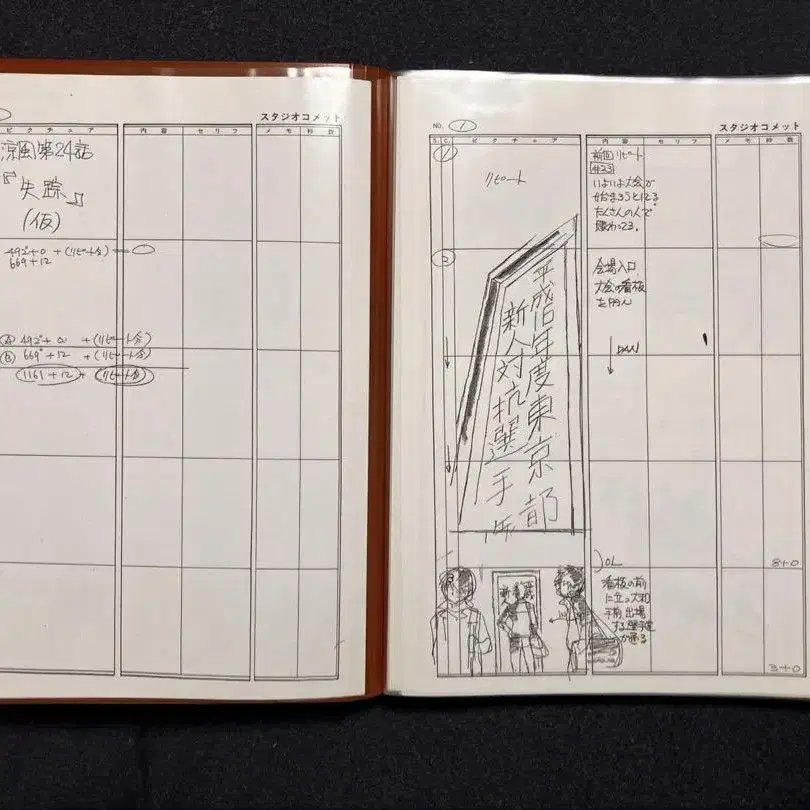 スタジオコメット
ピクチュア 内容 セリフ メモ 秒数
涼風第24話
『失踪』
(仮)
492+0 +(リピート分)
669+12
Ⓐ 492+0 +(リピート分)
Ⓑ 669+12 +(リピート分)
1161+12 +(リピート分)
NO. 1
スタジオコメット
S. C. ピクチュア 内容 セリフ メモ 秒数
1
リピート
前回リピート
#23
いよいよ大会が
始まろうとしてる
たくさんの人で
賑わってる。
2
平成18年度東京都
新人対抗選手
会場入口
大会の看板
PAN
8+0
OL
看板の前
に立つ大和
手前出場
する選手達
が通る
3+0